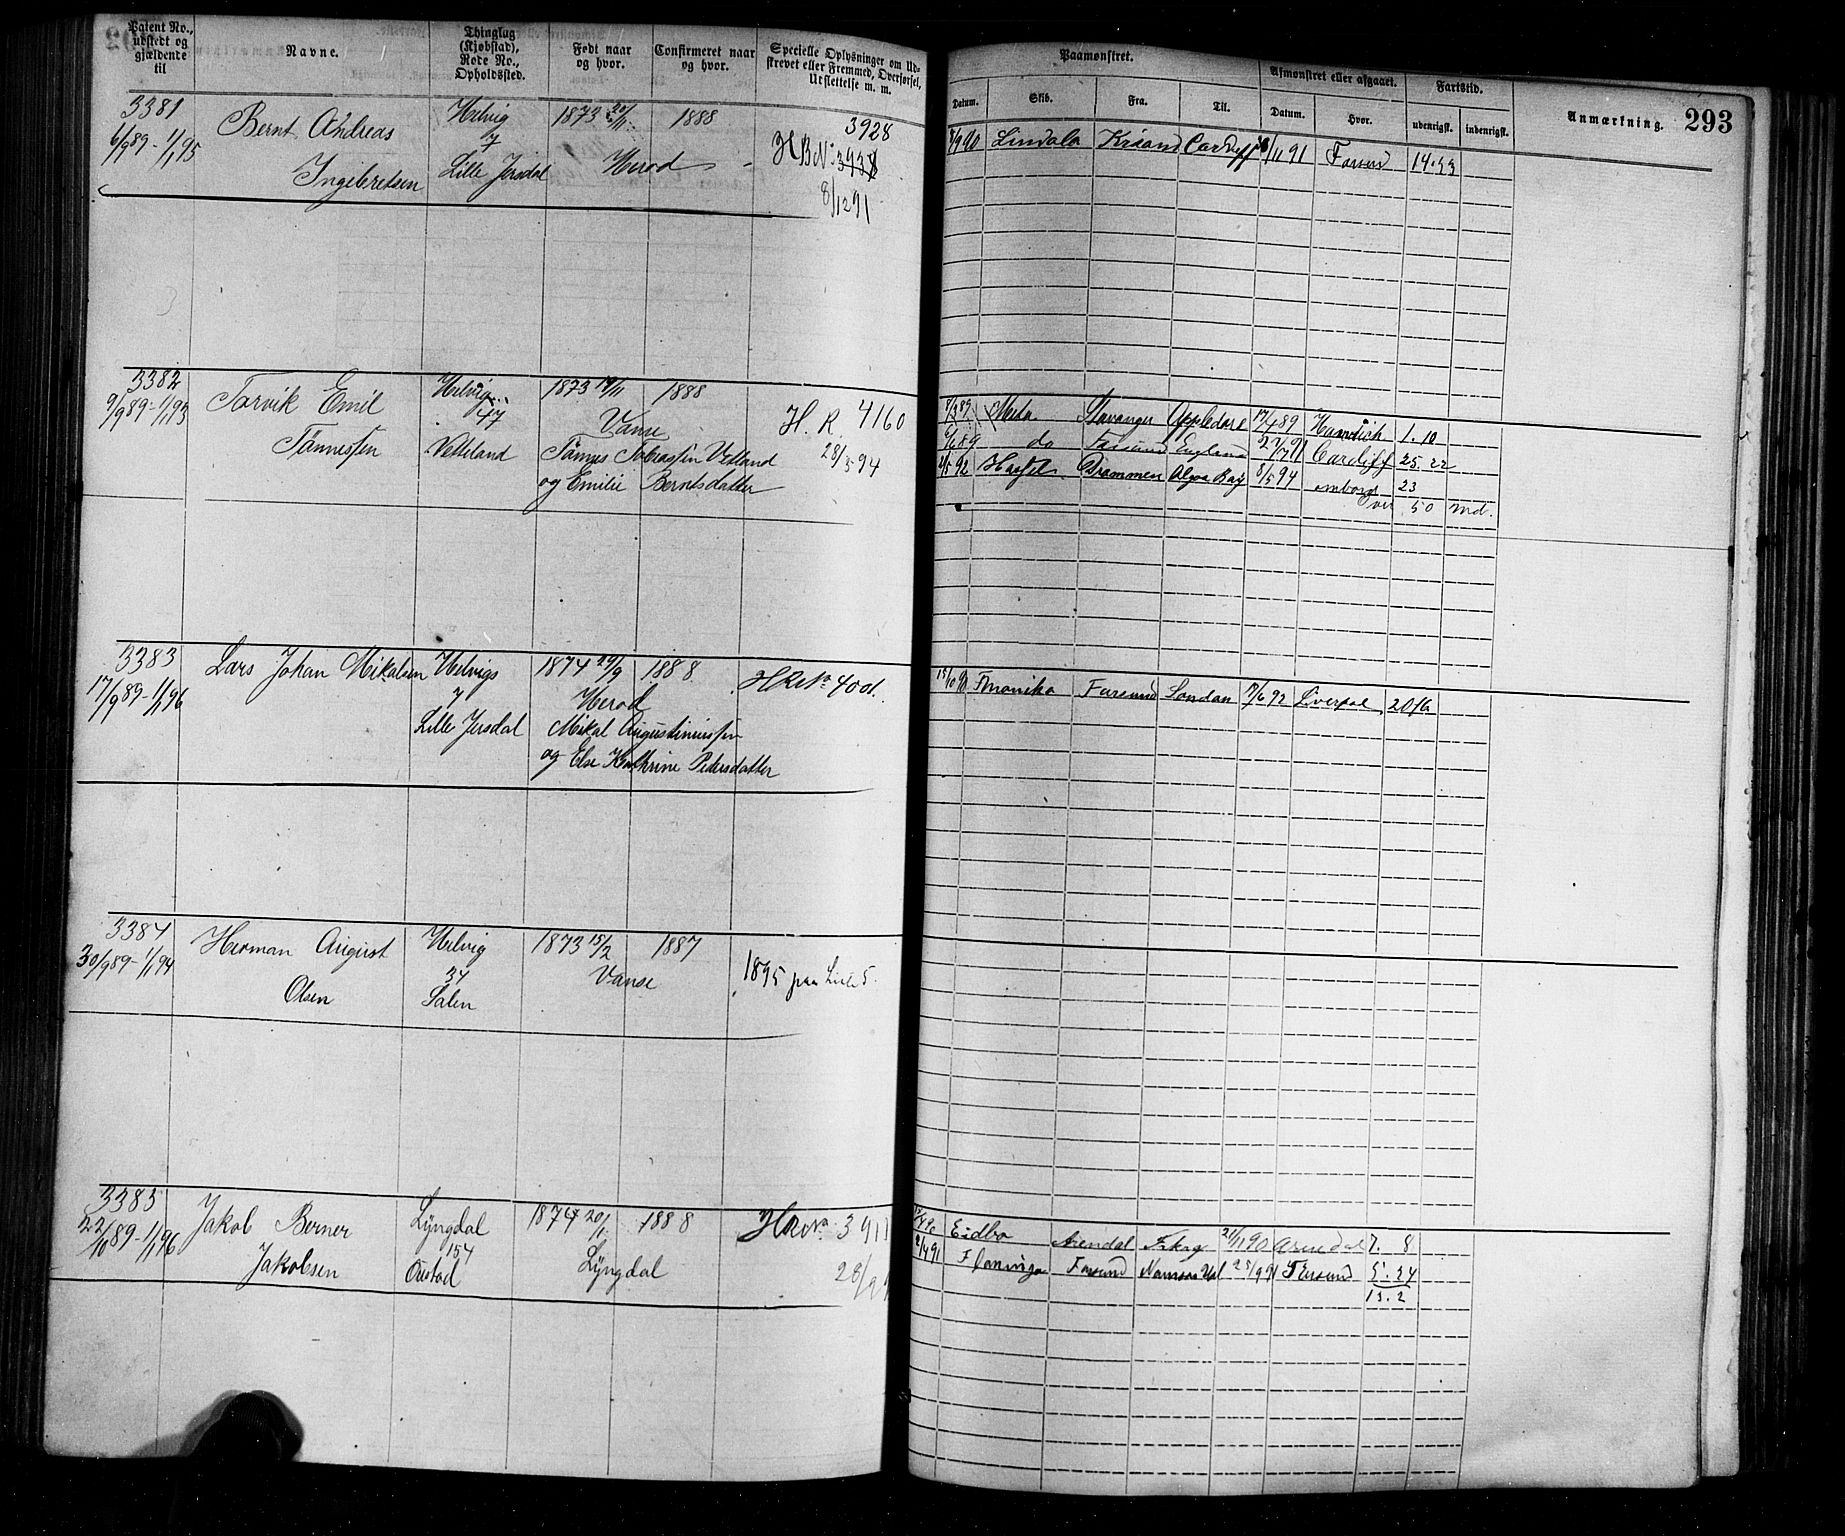 Patent No., udstedt og gjældende til
Navne.
Thinglag (Kjøbstad), Rode No., Opholdssted.
Født naar og hvor.
Confirmeret naar og hvor.
Specielle Oplysninger om Udskrevet eller Fremmed, Overførsel, Utslettelse m. m.
Paamønstret.
Datum. Skib. Fra. Til.
Afmønstret eller afgaaet.
Datum. Hvor.
Fartstid.
udenrigsk. indenrigsk.
Anmærkning. 293
3381
6/9 89 - 1/1 95
Bernt Andreas
Ingebretsen
Helvig
7
Lille Jersdal
1873 20/11 1888
Herod
3928
8/12 91
7/9 90 Lindola Krsand Cardiff /11 91 Farsund 14.23
3382
9/9 89 - 1/1 95
Torvik Emil
Tönnessen
Helvig
47
Vetteland
1873 14/11 1888
Vanse
Tönnes Tobiassen Vetland
og Emilie Berntsdatter
H. R. 4160
28/5 94
8/3 89 Meta Stavanger Appledore 17/4 89 Harwich 1.10
6/6 89 do Farsund England 27/7 91 Cardiff 25.22
2/5 92 Drammen Algoa Bay 8/5 94 ombord 23
over 50 Md.
3383
17/9 89 - 1/1 96
Lars Johan Mikalsen
Helvigs
7
Lille Jersdal
1874 29/9 1888
Herod
Mikal Augustinussen
og Else Kathrine Pedersdatter
15/10 90 Fmonika Farsund London 7/6 92 Liverpool
3384
30/9 89 - 1/1 94
Herman August
Olsen
Helvig
34
Salen
1873 15/2 1887
Vanse
1895 paa Liste 5.
3385
22/10 89 - 1/1 96
Jakob Berner
Jakobsen
Lyngdal
154
Oustad
1874 20/1 1888
Lyngdal
28/9
Eidbo Arendal 21/11 90 Arendal 7. 8
2/4 91 Flamingo Farsund 25/9 91 Farsund 5. 24
13. 2